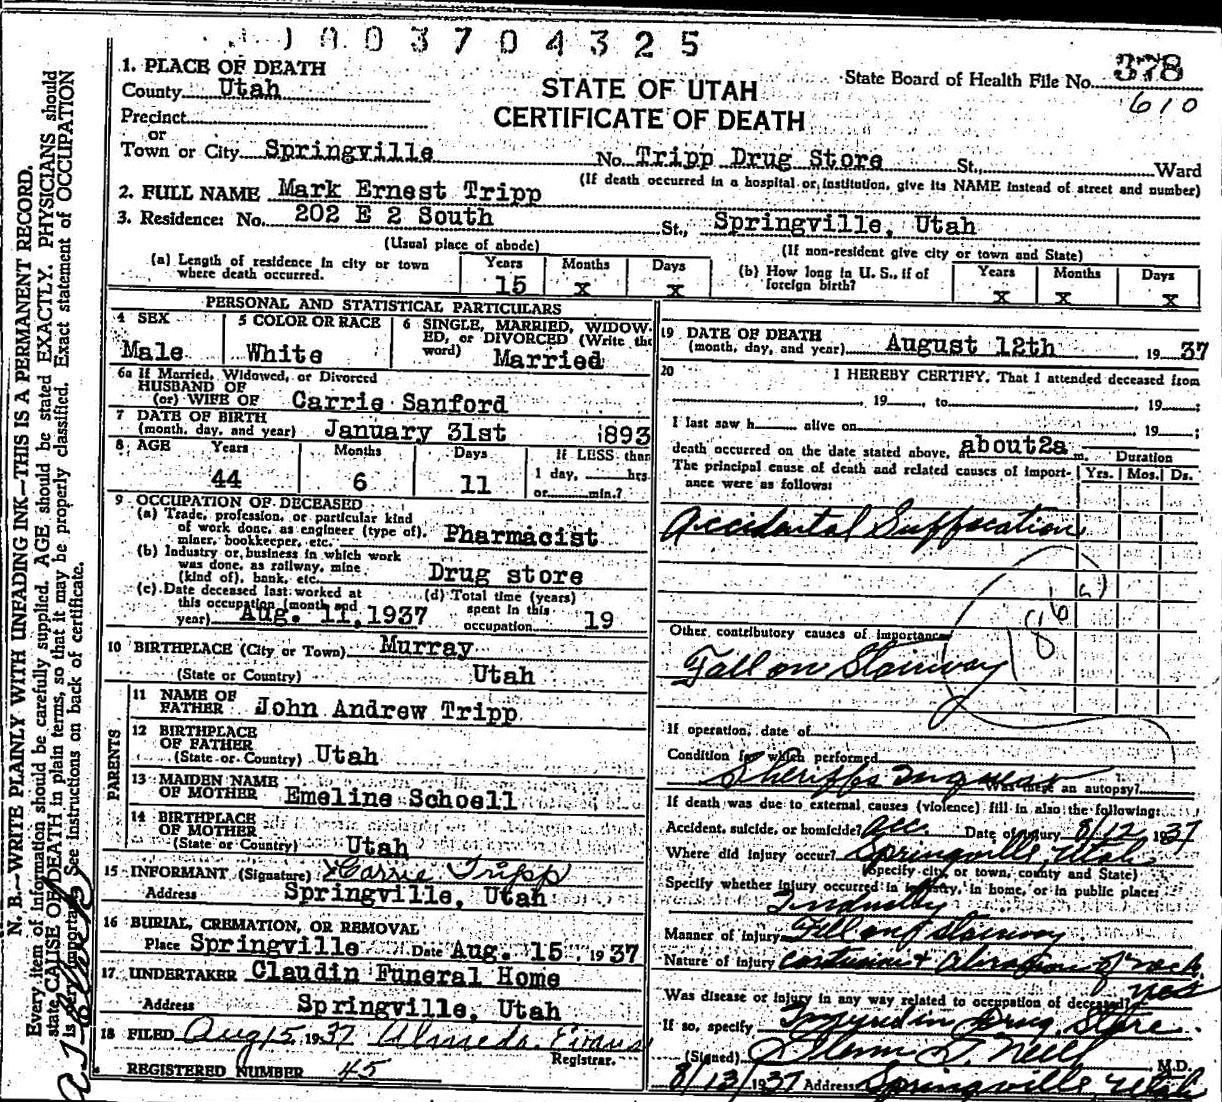 1003704325
1. PLACE OF DEATH
County Utah
STATE OF UTAH
CERTIFICATE OF DEATH
State Board of Health File No. 378
610
Precinct
or
Town or City Springville No. Tripp Drug Store St., Ward
(If death occurred in a hospital or institution, give its NAME instead of street and number)
2. FULL NAME Mark Ernest Tripp
3. Residence: No. 202 E 2 South St., Springville, Utah
(Usual place of abode) (If non-resident give city or town and State)
(a) Length of residence in city or town where death occurred. Years 15 Months x Days x
(b) How long in U. S., if of foreign birth? Years x Months x Days x
PERSONAL AND STATISTICAL PARTICULARS
4 SEX Male
5 COLOR OR RACE White
6 SINGLE, MARRIED, WIDOWED, or DIVORCED (Write the word) Married
6a If Married, Widowed, or Divorced
HUSBAND OF
(or) WIFE OF Carrie Sanford
7 DATE OF BIRTH
(month, day, and year) January 31st 1893
8 AGE Years 44 Months 6 Days 11 If LESS than 1 day, hrs. or min.?
9 OCCUPATION OF DECEASED
(a) Trade, profession, or particular kind
of work done, as engineer (type of),
miner, bookkeeper, etc. Pharmacist
(b) Industry or business in which work
was done, as railway, mine
(kind of), bank, etc. Drug store
(c) Date deceased last worked at
this occupation (month and
year) Aug. 11, 1937
(d) Total time (years)
spent in this
occupation 19
10 BIRTHPLACE (City or Town) Murray
(State or Country) Utah
PARENTS
11 NAME OF
FATHER John Andrew Tripp
12 BIRTHPLACE
OF FATHER
(State or Country) Utah
13 MAIDEN NAME
OF MOTHER Emeline Schoell
14 BIRTHPLACE
OF MOTHER
(State or Country) Utah
15 INFORMANT (Signature) x Carrie Tripp
Address Springville, Utah
16 BURIAL, CREMATION, OR REMOVAL
Place Springville Date Aug. 15 1937
17 UNDERTAKER Claudin Funeral Home
Address Springville, Utah
18 FILED Aug 15 1937 Almeda Evans
Registrar.
REGISTERED NUMBER 45
19 DATE OF DEATH
(month, day, and year) August 12th, 1937
20 I HEREBY CERTIFY, That I attended deceased from
, 19 , to , 19 ;
I last saw h alive on 19 ;
death occurred on the date stated above, at about 2a m.
Duration
The principal cause of death and related causes of importance were as follows: Yrs. Mos. Ds.
Accidental Suffocation
186
Other contributory causes of importance
Fall on Stairway
If operation, date of
Condition for which performed
Sheriffs Inquest
Was there an autopsy?
If death was due to external causes (violence) fill in also the following:
Accident, suicide, or homicide? Acc. Date of injury 8/12 1937
Where did injury occur? Springville, Utah
(Specify city, or town, county and State)
Specify whether injury occurred in industry, in home, or in public place:
Industry
Manner of injury Fall on stairway
Nature of injury contusion & abrasion of neck.
Was disease or injury in any way related to occupation of deceased? yes
If so, specify Injured in Drug Store.
(Signed) Glenn D. Neill M.D.
8/13/1937 Address Springville, Utah
N. B.—WRITE PLAINLY WITH UNFADING INK—THIS IS A PERMANENT RECORD.
Every item of information should be carefully supplied. AGE should be stated EXACTLY. PHYSICIANS should
state CAUSE OF DEATH in plain terms, so that it may be properly classified. Exact statement of OCCUPATION
is very important. See instructions on back of certificate.